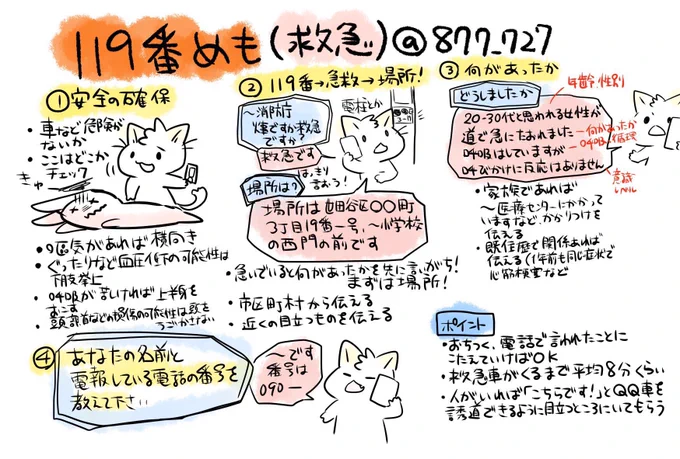 119番めも(救急)@877_727
①安全の確保
・車など危険がないか
・ここはどこかチェック
きゅ〜
・嘔気があれば横向き
・ぐったりなど血圧低下の可能性は
下肢挙上
・呼吸が苦しければ上半身を
おこす
・頭頸部などの損傷の可能性は頭を
うごかさない
②119番→急救→場所!
〜消防庁
火事ですか救急
ですか?
救急です
はっきり
言おう!
電柱とか
場所は?
場所は世田谷区〇〇町
3丁目19番一号、〜小学校
の西門の前です
・急いでいると何があったかを先に言いがち!
まずは場所!
・市区町村から伝える
・近くの目立つものを伝える
③何があったか
どうしましたか
年齢、性別
20-30代と思われる女性が
道で急にたおれました
何があったか
呼吸はしていますが
呼吸、循環
呼びかけに反応はありません
意識
レベル
・家族であれば
〜医療センターにかかって
いますなど、かかりつけを
伝える
・既往歴で関係あれば
伝える(1年前も同じ症状で
心筋梗塞など
④あなたの名前と
電報している電話の番号を
教えて下さい
〜です
番号は
090ー
ポイント
・おちつく、電話で言われたことに
こたえていけばOK
・救急車がくるまで平均8分くらい
・人がいれば「こちらです!」とQQ車を
誘導できるように目立つところにいてもらう